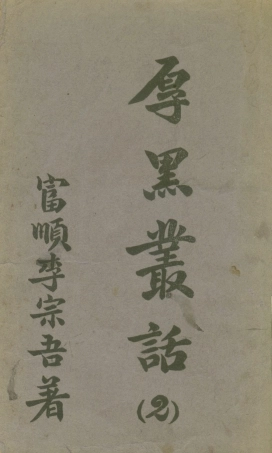 厚黑叢話
(2)
富順李宗吾著